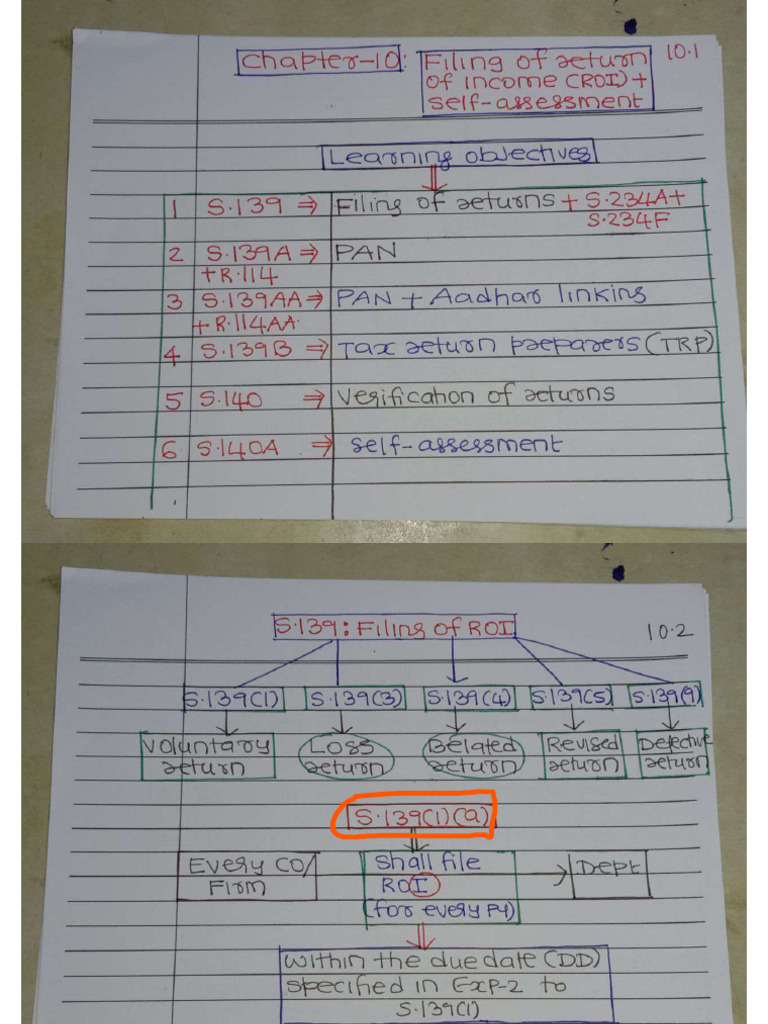 Chapter-10: Filing of return 10.1
of income (ROI) +
self-assessment
Learning objectives
1 S.139 ⇒ Filing of returns + S.234A +
S.234F
2 S.139A ⇒ PAN
+ R.114
3 S.139AA ⇒ PAN + Aadhar linking
+ R.114AA
4 S.139B ⇒ Tax return preparers (TRP)
5 S.140 ⇒ Verification of returns
6 S.140A ⇒ self-assessment
S.139: Filing of ROI 10.2
S.139(1) S.139(3) S.139(4) S.139(5) S.139(9)
Voluntary return
Loss return
Belated return
Revised return
Defective return
S.139(1)(a)
Every CO/
Firm
Shall file
ROI
(for every PY)
Dept
within the due date (DD)
specified in EXP-2 to
S.139(1)